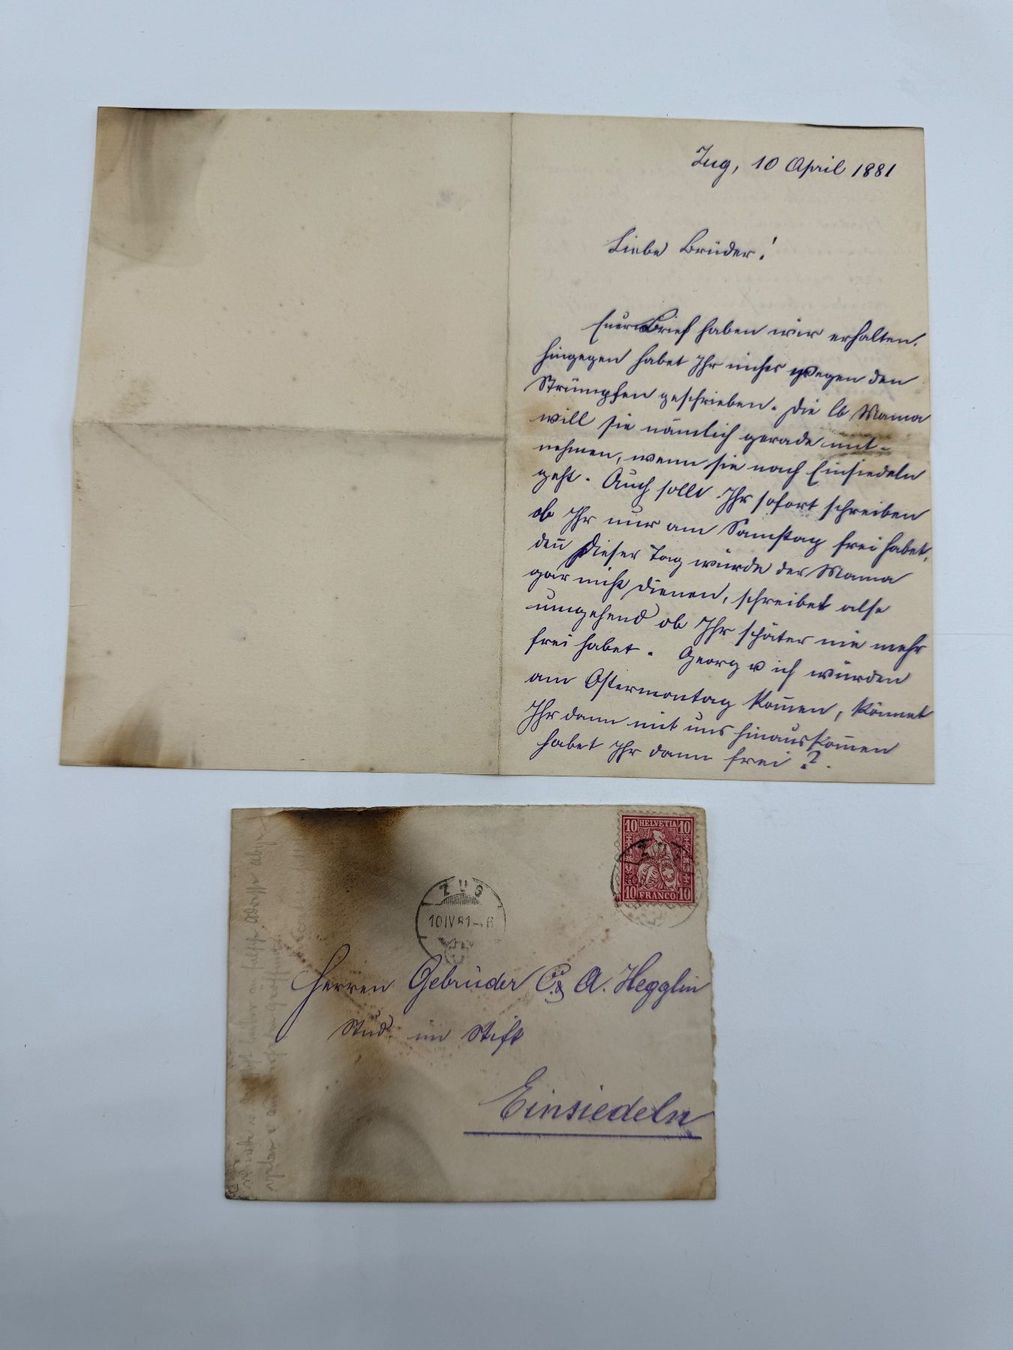 Zug, 10 April 1881
Liebe Brüder!
Euern Brief haben wir erhalten.
Hingegen habet Ihr nichts wegen den
Strümpfen geschrieben. Die lb Mama
will sie nämlich gerade mit-
nehmen, wenn sie nach Einsiedeln
geht. Auch sollt Ihr sofort schreiben
ob Ihr nur am Samstag frei habet,
den̄ dieser Tag würde der Mama
gar nicht dienen, schreibet also
umgehend ob Ihr später nie mehr
frei habet. Georg u ich würden
am Ostermontag kom̄en, könnet
Ihr dann mit uns hinauskom̄en
habet Ihr dann frei?.
10 HELVETIA 10
10 FRANCO 10
ZUG
10 IV 81
Herren Gebrüder C. & A. Hegglin
Stud. im Stift
Einsiedeln